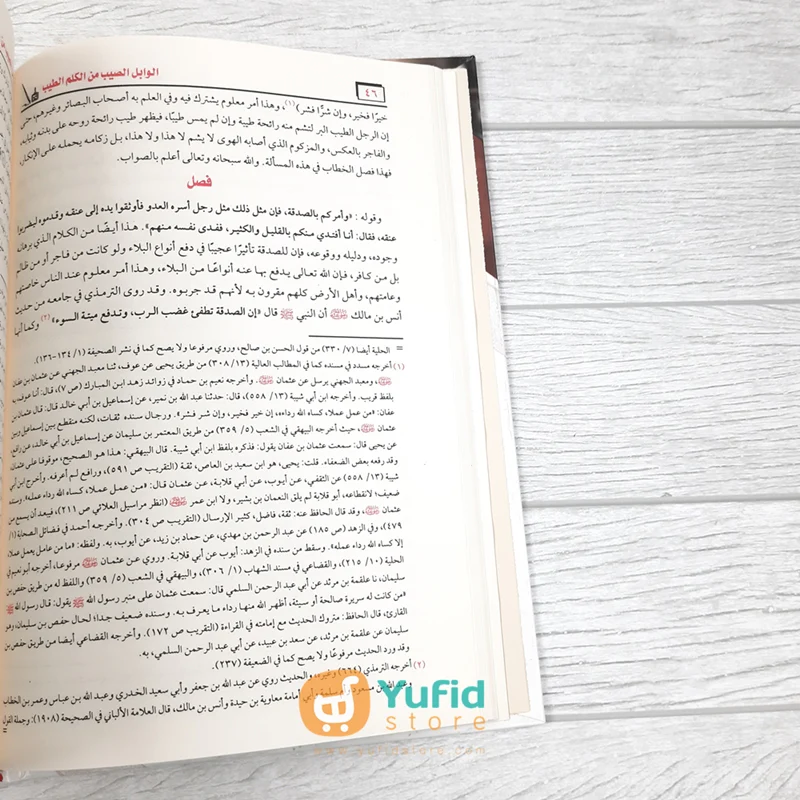 الوابل الصيب من الكلم الطيب
٤٦
خيرًا فخير، وإن شرًّا فشر)(١)، وهذا أمر معلوم يشترك فيه وفي العلم به أصحاب البصائر وغيرهم، حتى
إن الرجل الطيب البر لتشم منه رائحة طيبة وإن لم يمس طيبًا، فيظهر طيب رائحة روحه على بدنه وثيابه،
والفاجر بالعكس، والمزكوم الذي أصابه الهوى لا يشم لا هذا ولا هذا، بل زكامه يحمله على الإنكار،
فهذا فصل الخطاب في هذه المسألة. والله سبحانه وتعالى أعلم بالصواب.
فصل
وقوله : «وأمركم بالصدقة، فإن مثل ذلك مثل رجل أسره العدو فأوثقوا يده إلى عنقه وقدموه ليضربوا
عنقه، فقال: أنا أفتدي منكم بالقليل والكثير، ففدى نفسه منهم». هذا أيضًا من الكلام الذي برهانه
وجوده، ودليله وقوعه، فإن للصدقة تأثيرًا عجيبًا في دفع أنواع البلاء ولو كانت من فاجر أو من ظالم
بل من كافر، فإن الله تعالى يدفع بها عنه أنواعًا من البلاء، وهذا أمر معلوم عند الناس خاصتهم
وعامتهم، وأهل الأرض كلهم مقرون به لأنهم قد جربوه. وقد روى الترمذي في جامعه من حديث
أنس بن مالك أن النبي ﷺ قال «إن الصدقة تطفئ غضب الرب، وتدفع ميتة السوء»(٢) وكما أنها
= الحلية أيضا (٧/ ٣٣٠) من قول الحسن بن صالح، وروي مرفوعا ولا يصح كما في نشر الصحيفة (١/ ١٣٤-١٣٦).
(١) أخرجه مسدد في مسنده كما في المطالب العالية (١٣/ ٣٠٨) من طريق يحيى عن عوف، ثنا معبد الجهني عن عثمان بن عفان
، ومعبد الجهني يرسل عن عثمان . وأخرجه نعيم بن حماد في زوائد زهد ابن المبارك (ص ٧)، قال: أنا عوف، به
بلفظ قريب. وأخرجه ابن أبي شيبة (١٣/ ٥٥٨)، قال: حدثنا عبد الله بن نمير، عن إسماعيل بن أبي خالد قال: قال عثمان بن
عفان: «من عمل عملا، كساه الله رداءه، إن خير فخير، وإن شر فشر». ورجال سنده ثقات، لكنه منقطع بين إسماعيل وبين
عثمان ، حيث أخرجه البيهقي في الشعب (٥/ ٣٥٩) من طريق المعتمر بن سليمان عن إسماعيل بن أبي خالد، عن رافع،
عن يحيى قال: سمعت عثمان بن عفان يقول: فذكره بلفظ ابن أبي شيبة. قال البيهقي: هذا هو الصحيح، موقوفا على عثمان
وقد رفعه بعض الضعفاء. قلت: يحيى، هو ابن سعيد بن العاص، ثقة (التقريب ص ٥٩١)، ورافع لم أعرفه. وأخرج ابن أبي
شيبة (١٣/ ٥٥٨) عن الثقفي، عن أيوب، عن أبي قلابة، عن عثمان قال: «من عمل عملا، كساه الله رداء عمله». وسنده
ضعيف؛ لانقطاعه، أبو قلابة لم يلق النعمان بن بشير، ولا ابن عمر (انظر مراسيل العلائي ص ٢١١)، فيبعد أن يسمع من
عثمان ، وقد قال الحافظ عنه: ثقة، فاضل، كثير الإرسال (التقريب ص ٣٠٤). وأخرجه أحمد في فضائل الصحابة (١/
٤٧٩)، وفي الزهد (ص ١٨٥) عن عبد الرحمن بن مهدي، عن حماد بن زيد، عن أيوب، به. ولفظه: «ما من عامل يعمل عملا،
إلا كساه الله رداء عمله». وسقط من سنده في الزهد: أيوب عن أبي قلابة. وروي عن عثمان مرفوعا، أخرجه أبو نعيم في
الحلية (١٠/ ٢١٥)، والقضاعي في مسند الشهاب (١/ ٣٠٦)، والبيهقي في الشعب (٥/ ٣٥٩) واللفظ له من طريق حفص بن
سليمان، نا علقمة بن مرثد عن أبي عبد الرحمن السلمي قال: سمعت عثمان على منبر رسول الله ﷺ يقول: قال رسول الله ﷺ
«من كانت له سريرة صالحة أو سيئة، أظهر الله منها رداء ما يعرف به. وسنده ضعيف جدا؛ لحال حفص بن سليمان، وهو
القارئ، قال الحافظ: متروك الحديث مع إمامته في القراءة (التقريب ص ١٧٢). وأخرجه القضاعي أيضا من طريق حفص بن
سليمان عن علقمة بن مرثد، عن سعد بن عبيد، عن أبي عبد الرحمن السلمي، به.
وقد ورد الحديث مرفوعًا ولا يصح كما في الضعيفة (٢٣٧).
(٢) أخرجه الترمذي (٦٦٤) وغيره، والحديث روي عن عبد الله بن جعفر وأبي سعيد الخدري وعبد الله بن عباس وعمر بن الخطاب
وعبد الله بن مسعود وأم سلمة وأبي أمامة معاوية بن حيدة وأنس بن مالك، قال العلامة الألباني في الصحيحة (١٩٠٨). وجملة القول
Yufid
store
www.yufidstore.com